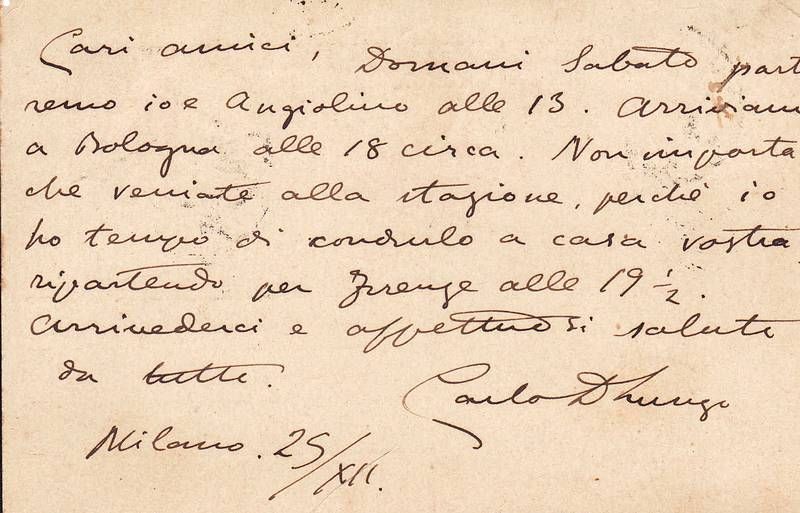 Cari amici, Domani Sabato part
remo io e Angiolino alle 13. Arriviam
a Bologna alle 18 circa. Non importa
che veniate alla stazione, perché io
ho tempo di condurlo a casa vostra,
ripartendo per Firenze alle 19 1/2.
Arrivederci e affettuosi saluti
da tutti.
Carlo
Milano. 25/XII.